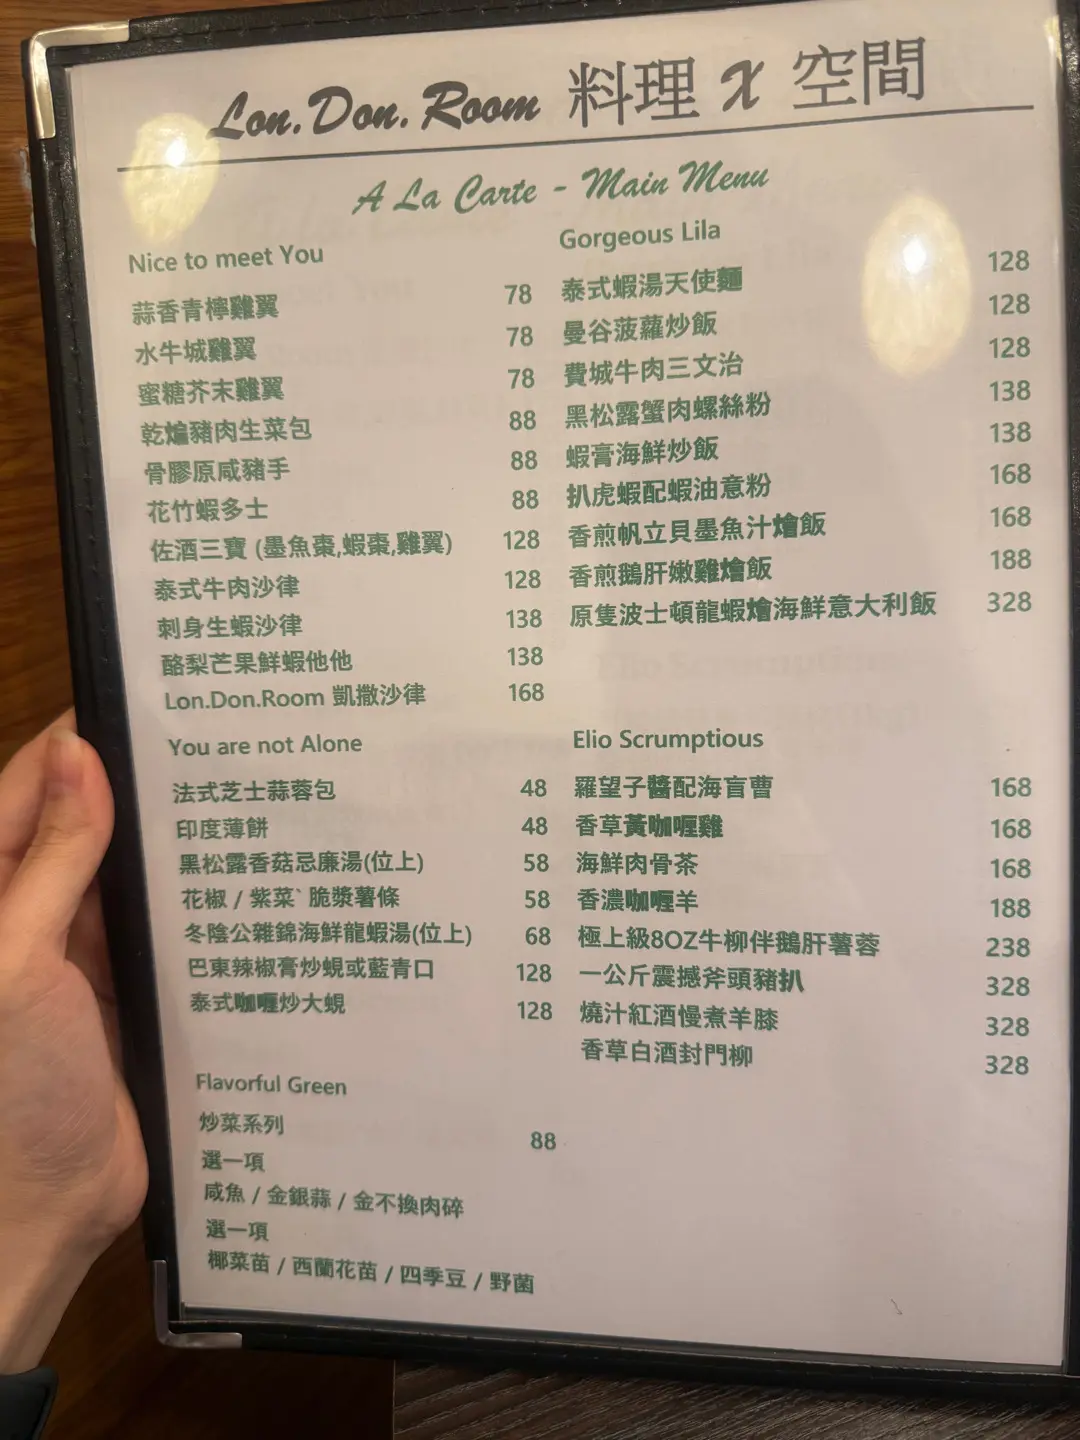 Lon.Don.Room 料理 X 空間
A La Carte - Main Menu
Nice to meet You
蒜香青檸雞翼 78
水牛城雞翼 78
蜜糖芥末雞翼 78
乾煸豬肉生菜包 88
骨膠原咸豬手 88
花竹蝦多士 88
佐酒三寶 (墨魚棗,蝦棗,雞翼) 128
泰式牛肉沙律 128
刺身生蝦沙律 138
酪梨芒果鮮蝦他他 138
Lon.Don.Room 凱撒沙律 168
Gorgeous Lila
泰式蝦湯天使麵 128
曼谷菠蘿炒飯 128
費城牛肉三文治 128
黑松露蟹肉螺絲粉 138
蝦膏海鮮炒飯 138
扒虎蝦配蝦油意粉 168
香煎帆立貝墨魚汁燴飯 168
香煎鵝肝嫩雞燴飯 188
原隻波士頓龍蝦燴海鮮意大利飯 328
You are not Alone
法式芝士蒜蓉包 48
印度薄餅 48
黑松露香菇忌廉湯(位上) 58
花椒 / 紫菜` 脆漿薯條 58
冬陰公雜錦海鮮龍蝦湯(位上) 68
巴東辣椒膏炒蜆或藍青口 128
泰式咖喱炒大蜆 128
Elio Scrumptious
羅望子醬配海盲曹 168
香草黃咖喱雞 168
海鮮肉骨茶 168
香濃咖喱羊 188
極上級8OZ牛柳伴鵝肝薯蓉 238
一公斤震撼斧頭豬扒 328
燒汁紅酒慢煮羊膝 328
香草白酒封門柳 328
Flavorful Green
炒菜系列 88
選一項
咸魚 / 金銀蒜 / 金不換肉碎
選一項
椰菜苗 / 西蘭花苗 / 四季豆 / 野菌